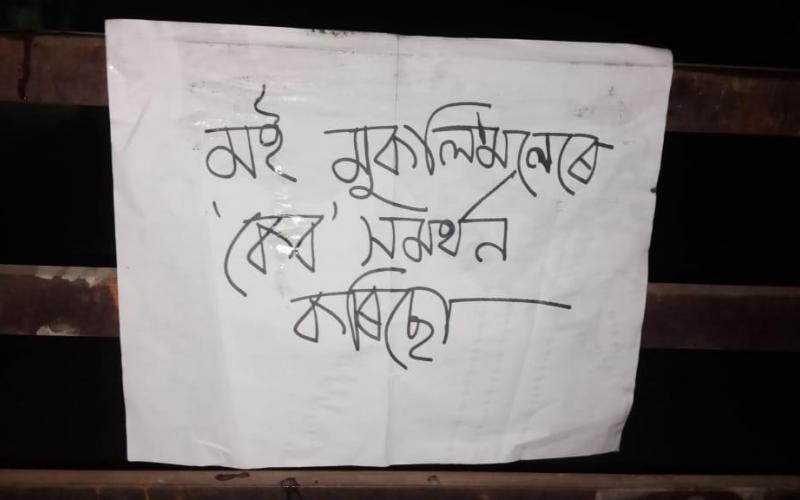 মই মুকলিমনেৰে
'কেব' সমৰ্থন
কৰিছো